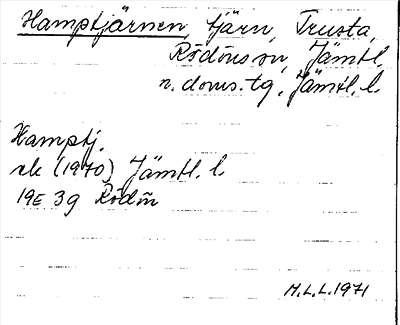 Hamptjärnen, tjärn, Trusta,
Rödöns sn, Jämtl.
n. doms. tg, Jämtl. l.
Hamptj.
ek (1970) Jämtl. l.
19E 3g Rödön
H.L.L. 1971